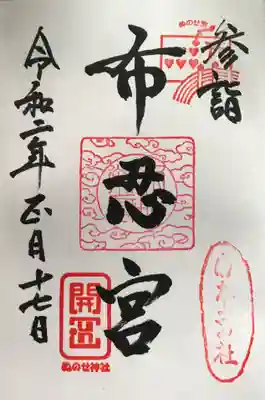 参詣
ぬのせ宮
布忍宮
令和二年正月十七日
開運
ぬのせ神社